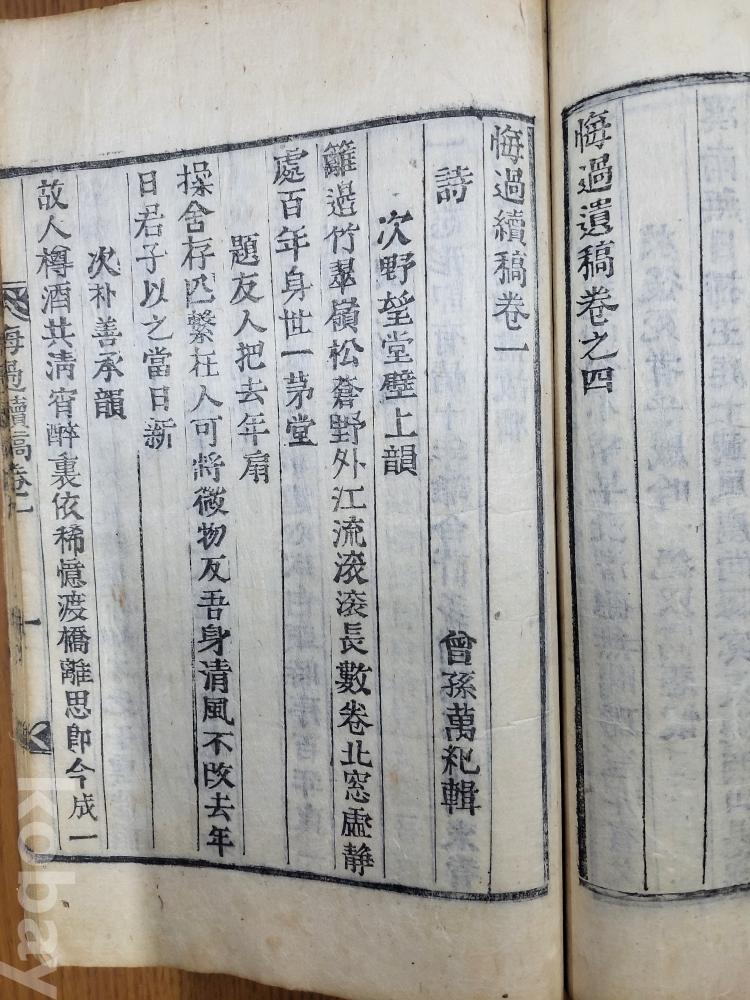 悔過遺稿卷之四
悔過續稿卷一
詩
曾孫萬紀輯
次野望堂壁上韻
籬邊竹翠嶺松蒼野外江流滚滚長數卷北窓虛靜
處百年身世一茅堂
題友人把去年扇
操舍存亾繫在人可將微物反吾身清風不改去年
日君子以之當日新
次朴善承韻
故人樽酒共清宵醉裏依稀憶渡橋離思卽今成一
悔過續稿卷一
一
kobay